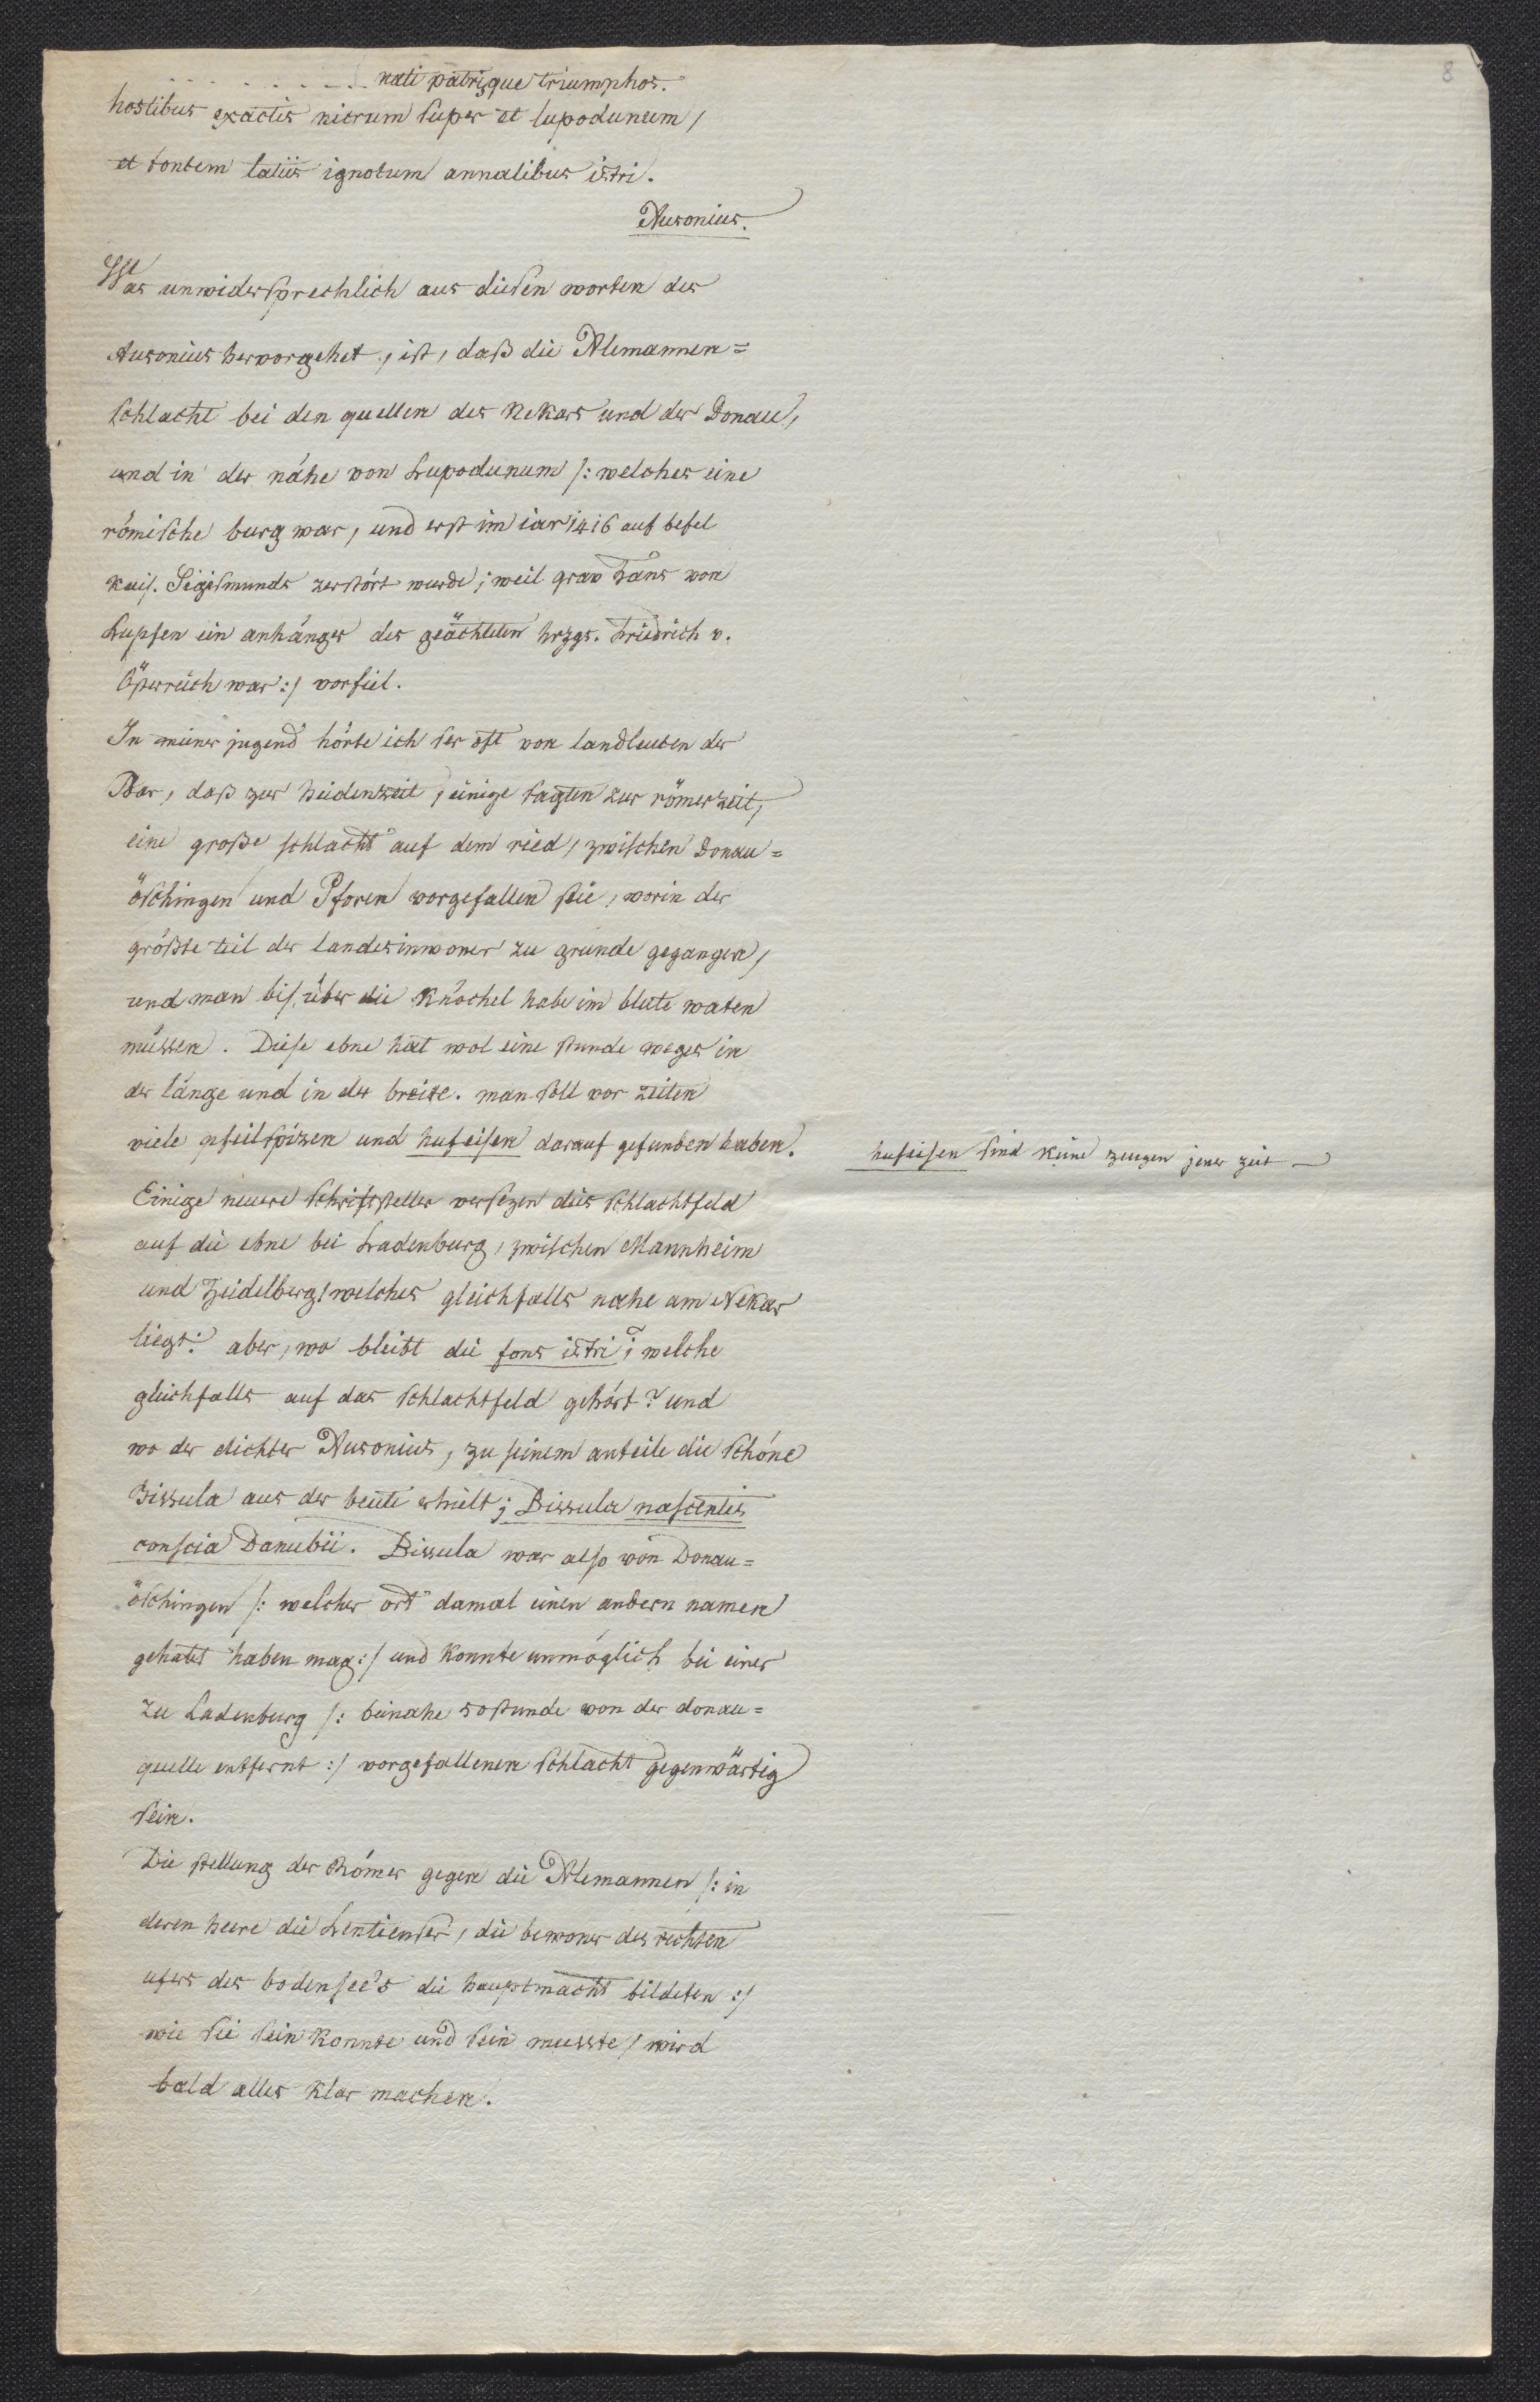 8
. . . . . . . . . . nati patrisque triumphos.
hostibus exactis nicrum super et lupodunum,
et fontem latiis ignotum annalibus istri.
Ausonius.
Was unwidersprechlich aus diesen worten des
Ausonius hervorgehet, ist, daß die Alemannen=
schlacht bei den quellen des Nekars und der Donau,
und in der nähe von Lupodunum /: welches eine
römische burg war, und erst im iar 1416 auf befel
kais. Sigismunds zerstört wurde; weil grav Hans von
Lupfen ein anhänger des geächteten hrzgs. Friedrich v.
Österreich war :/ vorfiel.
In meiner jugend hörte ich ser oft von landleuten der
Bar, daß zur heidenzeit, einige sagten zur römerzeit,
eine große schlacht auf dem ried, zwischen Donau=
öschingen und Pforen vorgefallen sei, worin der
größte teil der landesinwoner zu grunde gegangen,
und man bis über die knöchel habe im blute waten
müssen. Diese ebne hat wol eine stunde weges in
der länge und in der breite. man soll vor zeiten
viele pfeilspizen und hufeisen darauf gefunden haben.
hufeisen sind keine zeugen jener zeit —
Einige neuere schriftsteller versezen dies schlachtfeld
auf die ebne bei Ladenburg, zwischen Mannheim
und Heidelberg, welches gleichfalls nahe am Nekar
liegt: aber, wo bleibt die fons istri; welche
gleichfalls auf das schlachtfeld gehört? und
wo der dichter Ausonius, zu seinem anteile die schöne
Bissula aus der beute erhielt; Bissula nascentis
conscia Danubii. Bissula war also von Donau=
öschingen /: welcher ort damal einen andern namen
gehabt haben mag :/ und konnte unmöglich bei einer
zu Ladenburg /: beinahe 50 stunde von der donau=
quelle entfernt :/ vorgefallenen schlacht gegenwärtig
sein.
Die stellung der Römer gegen die Alemannen /: in
deren heere die Lentienser, die bewoner des rechten
ufers des bodensee's die hauptmacht bildeten :/
wie sie sein konnte und sein musste, wird
bald alles klar machen.